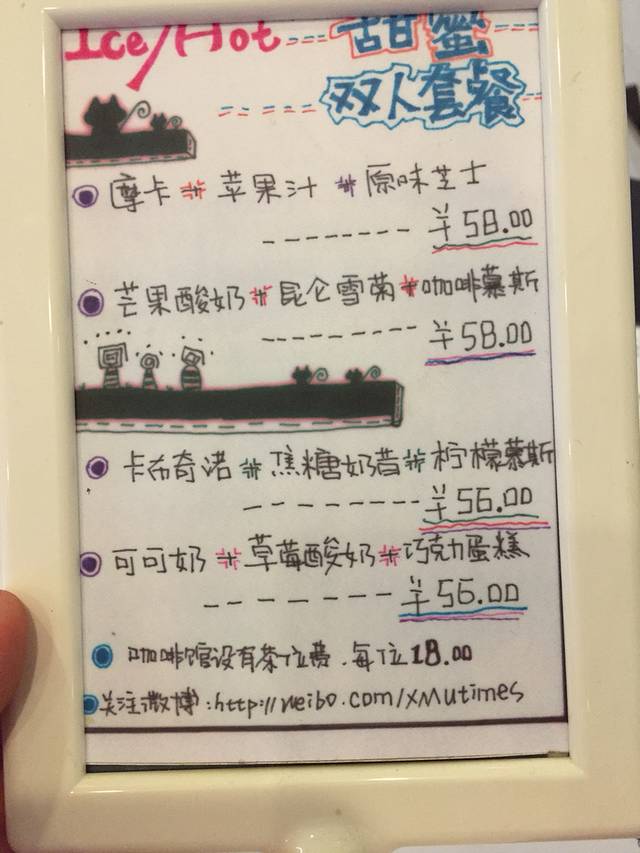 Ice/Hot 甜蜜
双人套餐
摩卡 # 苹果汁 # 原味芝士
¥58.00
芒果酸奶 # 昆仑雪菊 # 咖啡慕斯
¥58.00
卡布奇诺 # 焦糖奶昔 # 柠檬慕斯
¥56.00
可可奶 # 草莓酸奶 # 巧克力蛋糕
¥56.00
咖啡馆设有茶位费、每位18.00
关注微博:http://weibo.com/xmutimes